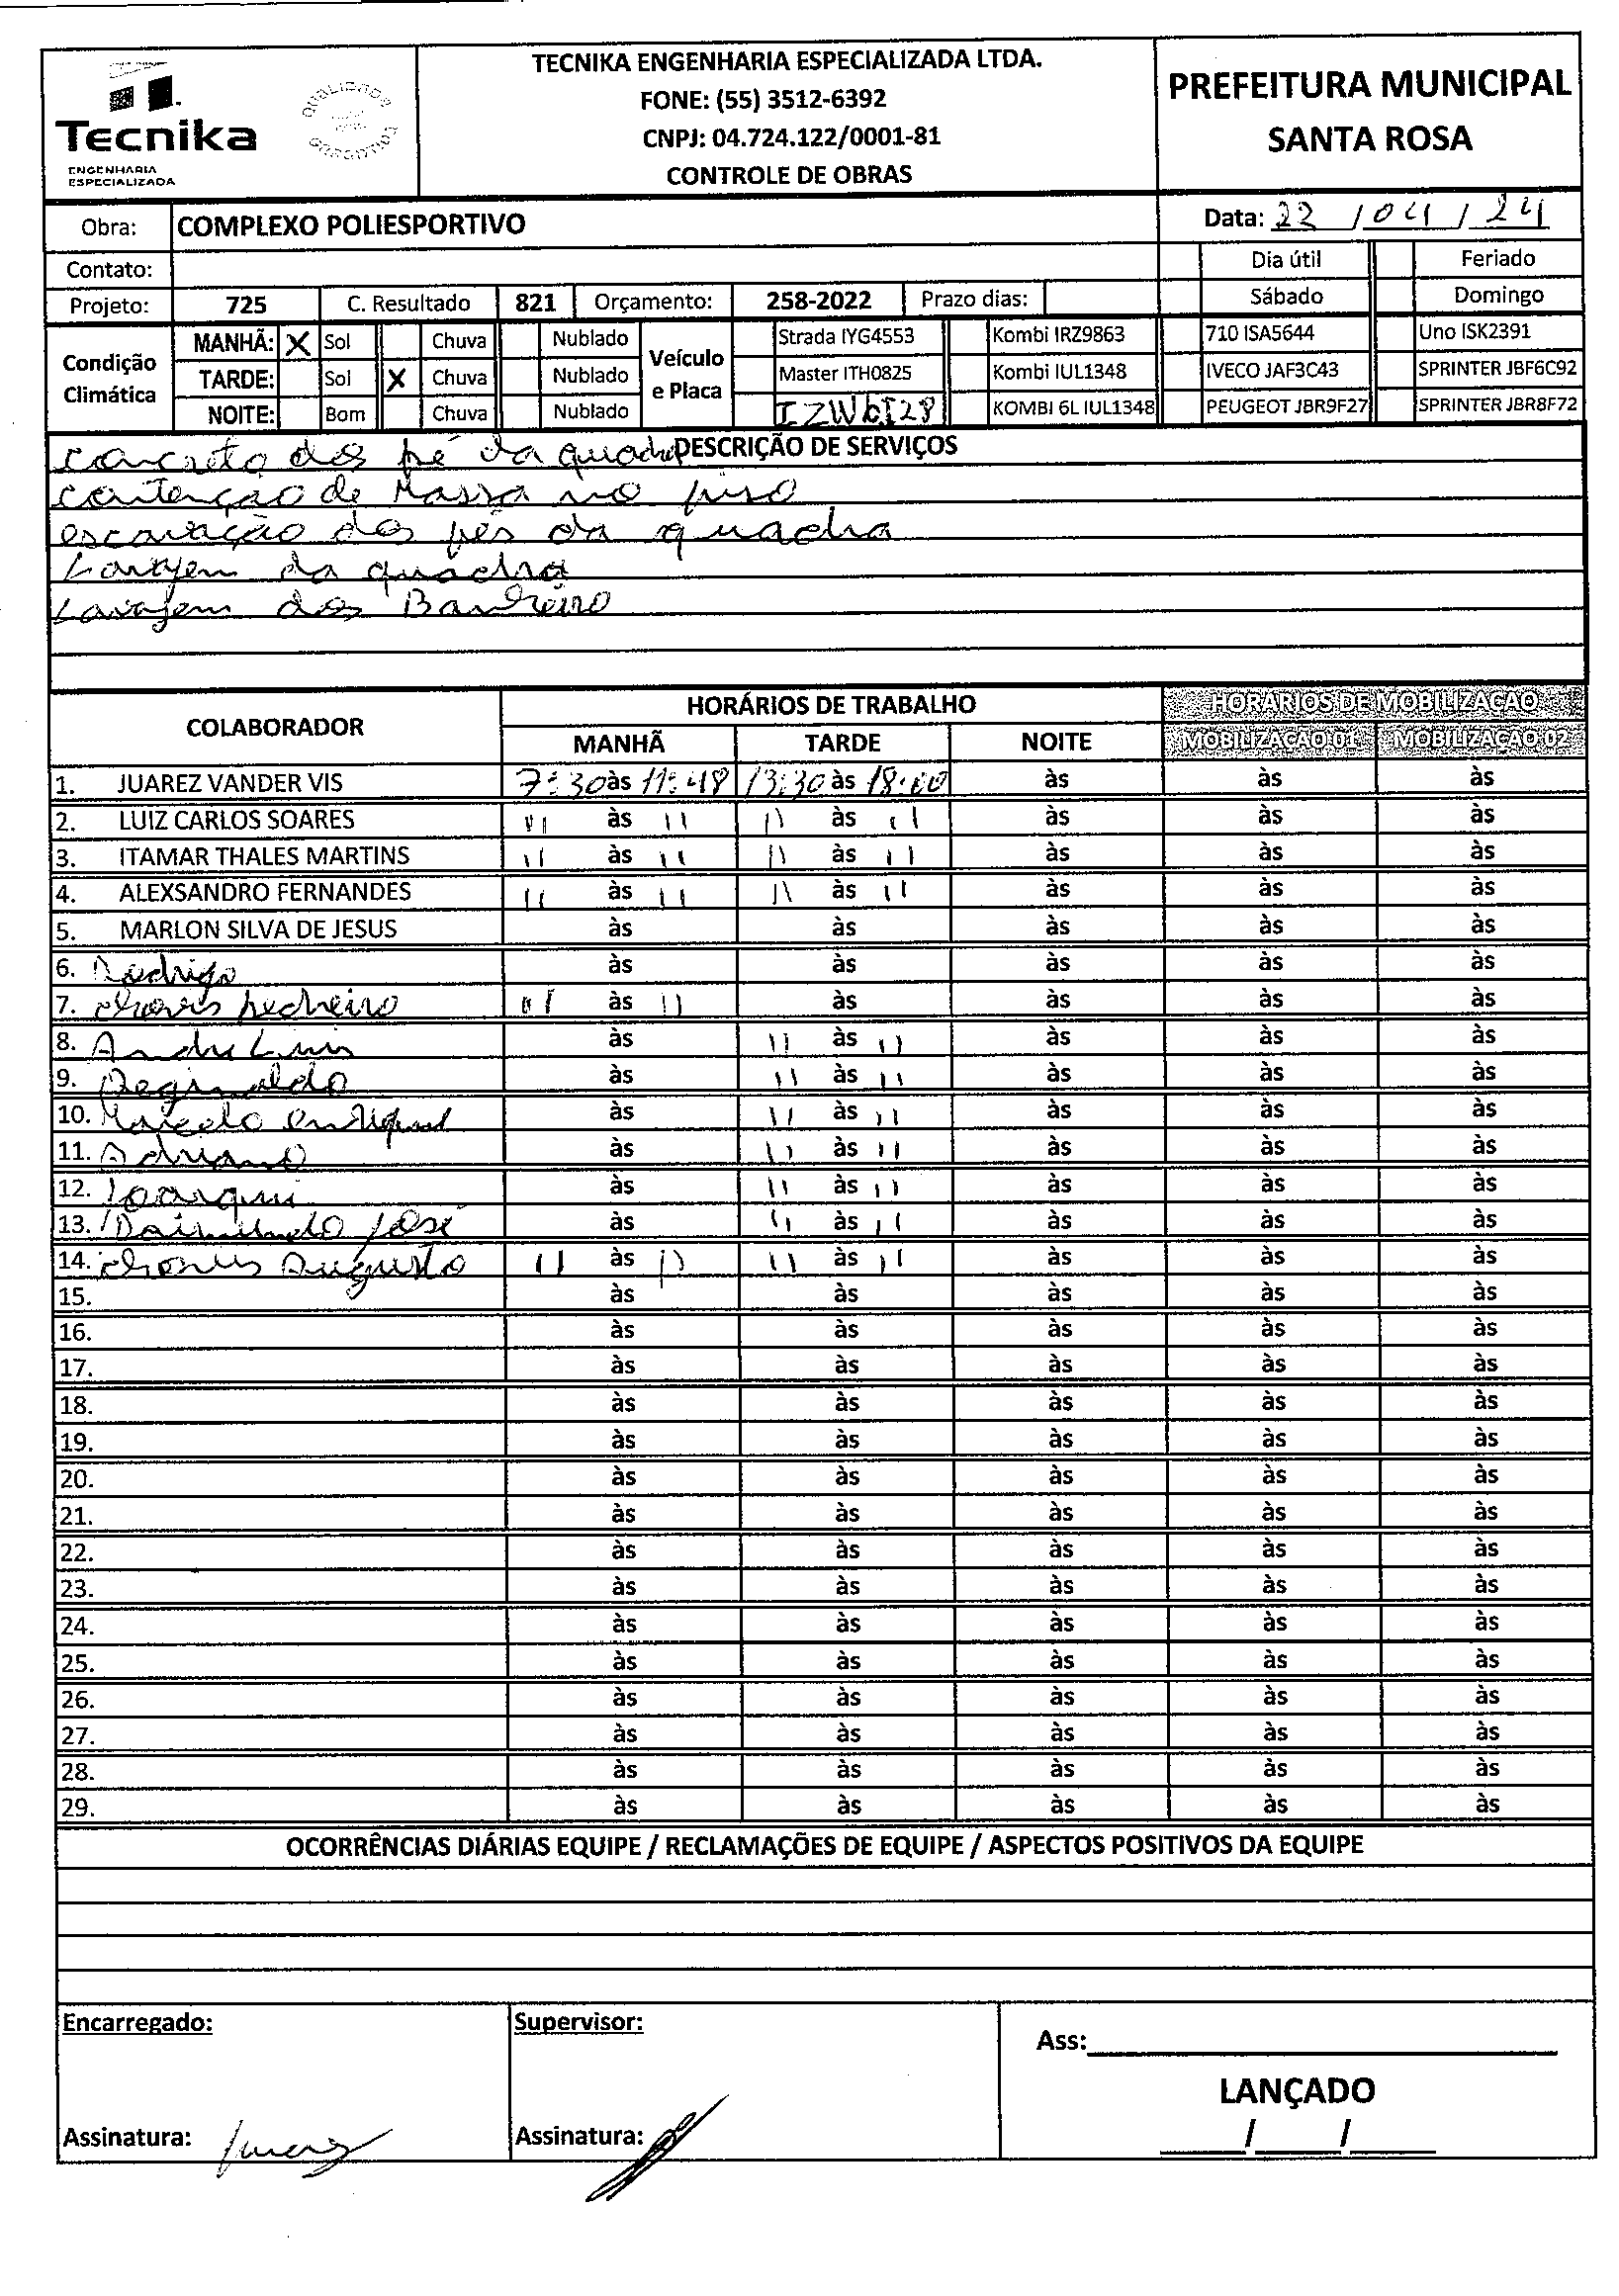 Tecnika
ENGENHARIA
ESPECIALIZADA
QUALIDADE
GARANTIDA
TECNIKA ENGENHARIA ESPECIALIZADA LTDA.
FONE: (55) 3512-6392
CNPJ: 04.724.122/0001-81
CONTROLE DE OBRAS
PREFEITURA MUNICIPAL
SANTA ROSA
Obra: COMPLEXO POLIESPORTIVO Data: 22 / 04 / 24
Contato: Dia útil Feriado
Projeto: 725 C. Resultado 821 Orçamento: 258-2022 Prazo dias: Sábado Domingo
Condição Climática
MANHÃ: X Sol Chuva Nublado
TARDE: Sol X Chuva Nublado
NOITE: Bom Chuva Nublado
Veículo e Placa
Strada IYG4553 Kombi IRZ9863 710 ISA5644 Uno ISK2391
Master ITH0825 Kombi IUL1348 IVECO JAF3C43 SPRINTER JBF6C92
IZW6I28 KOMBI 6L IUL1348 PEUGEOT JBR9F27 SPRINTER JBR8F72
DESCRIÇÃO DE SERVIÇOS
concreto dos pé da quadra
contenção de Massa no piso
escavação dos pés da quadra
Lavajem da quadra
Lavajem dos Banheiro
COLABORADOR HORÁRIOS DE TRABALHO HORÁRIOS DE MOBILIZAÇÃO
MANHÃ TARDE NOITE MOBILIZAÇÃO 01 MOBILIZAÇÃO 02
1. JUAREZ VANDER VIS 7:30 às 11:48 13:30 às 18:00 às às às
2. LUIZ CARLOS SOARES 11 às 11 11 às 11 às às às
3. ITAMAR THALES MARTINS 11 às 11 11 às 11 às às às
4. ALEXSANDRO FERNANDES 11 às 11 11 às 11 às às às
5. MARLON SILVA DE JESUS às às às às às
6. Rodrigo às às às às às
7. pedreiro 11 às 11 às às às às
8. Andre Luis às 11 às 11 às às às
9. Reginaldo às 11 às 11 às às às
10. Marcelo às 11 às 11 às às às
11. Adriano às 11 às 11 às às às
12. Joarqui às 11 às 11 às às às
13. Raimundo José às 11 às 11 às às às
14. Augusto 11 às 11 11 às 11 às às às
15. às às às às às
16. às às às às às
17. às às às às às
18. às às às às às
19. às às às às às
20. às às às às às
21. às às às às às
22. às às às às às
23. às às às às às
24. às às às às às
25. às às às às às
26. às às às às às
27. às às às às às
28. às às às às às
29. às às às às às
OCORRÊNCIAS DIÁRIAS EQUIPE / RECLAMAÇÕES DE EQUIPE / ASPECTOS POSITIVOS DA EQUIPE
Encarregado: Supervisor:
Ass:
LANÇADO
Assinatura: Juarez Assinatura:
/ /